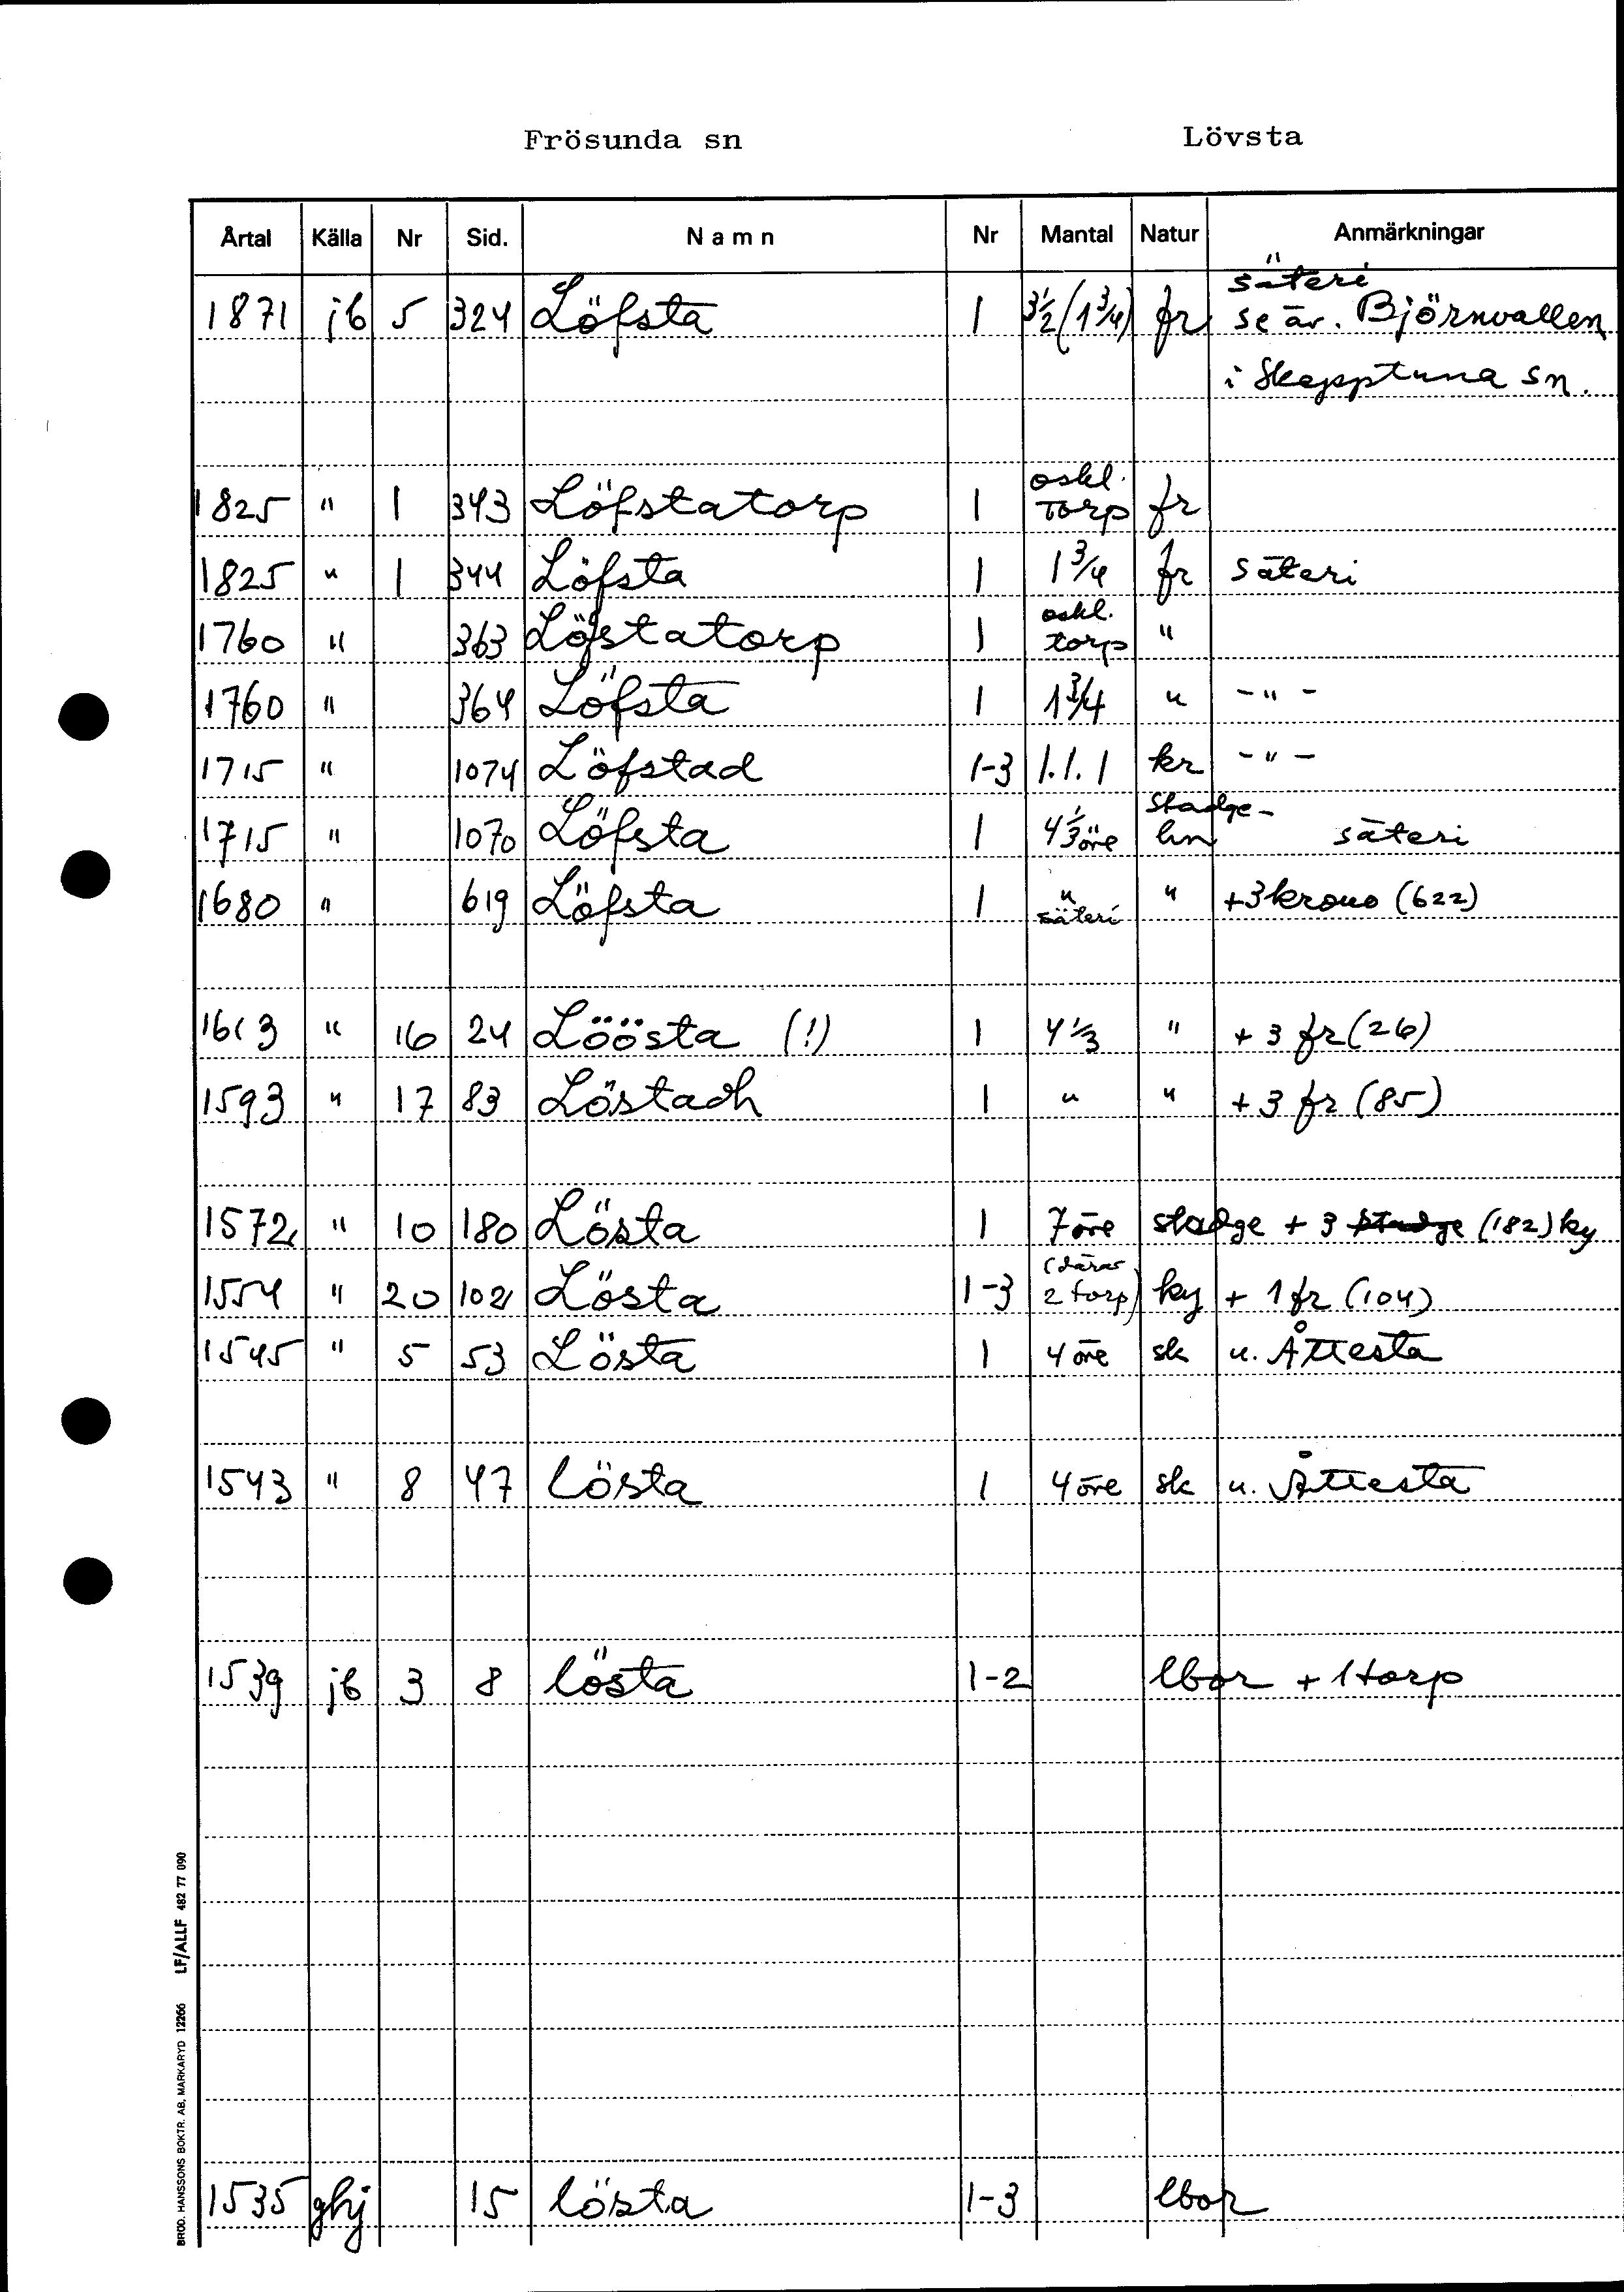 Frösunda sn Lövsta
Årtal Källa Nr Sid. Namn Nr Mantal Natur Anmärkningar
säteri
1871 jb 5 324 Löfsta 1 3½ (1¾) fr se äv. Björnvallen
i Skepptuna sn.
oskl.
1825 " 1 343 Löfstatorp 1 Torp fr
1825 " 1 344 Löfsta 1 1¾ fr säteri
oskl.
1760 " 363 Löfstatorp 1 torp "
1760 " 364 Löfsta 1 1¾ " - " -
1715 " 1074 Löfstad 1-3 1.1.1 kr - " -
stadge-
1715 " 1070 Löfsta 1 4⅓ öre hn säteri
1680 " 619 Löfsta 1 " " +3 krono (622)
säteri
1613 " 16 24 Löösta (!) 1 4⅓ " + 3 fr (26)
1593 " 17 83 Löstadh 1 " " + 3 fr (85)
1572 " 10 180 Lösta 1 7 öre stadge + 3 stadge (182) ky
(därav
1554 " 20 102 Lösta 1-3 2 torp) ky + 1 fr (104)
1545 " 5 53 Lösta 1 4 öre sk u. Åttesta
1543 " 8 47 lösta 1 4 öre sk u. Åttesta
1539 jb 3 8 lösta 1-2 lbor + 1 torp
1535 ghj 15 lösta 1-3 lbor
BRÖD. HANSSONS BOKTR. AB, MARKARYD 12266 LF/ALLF 482 77 090